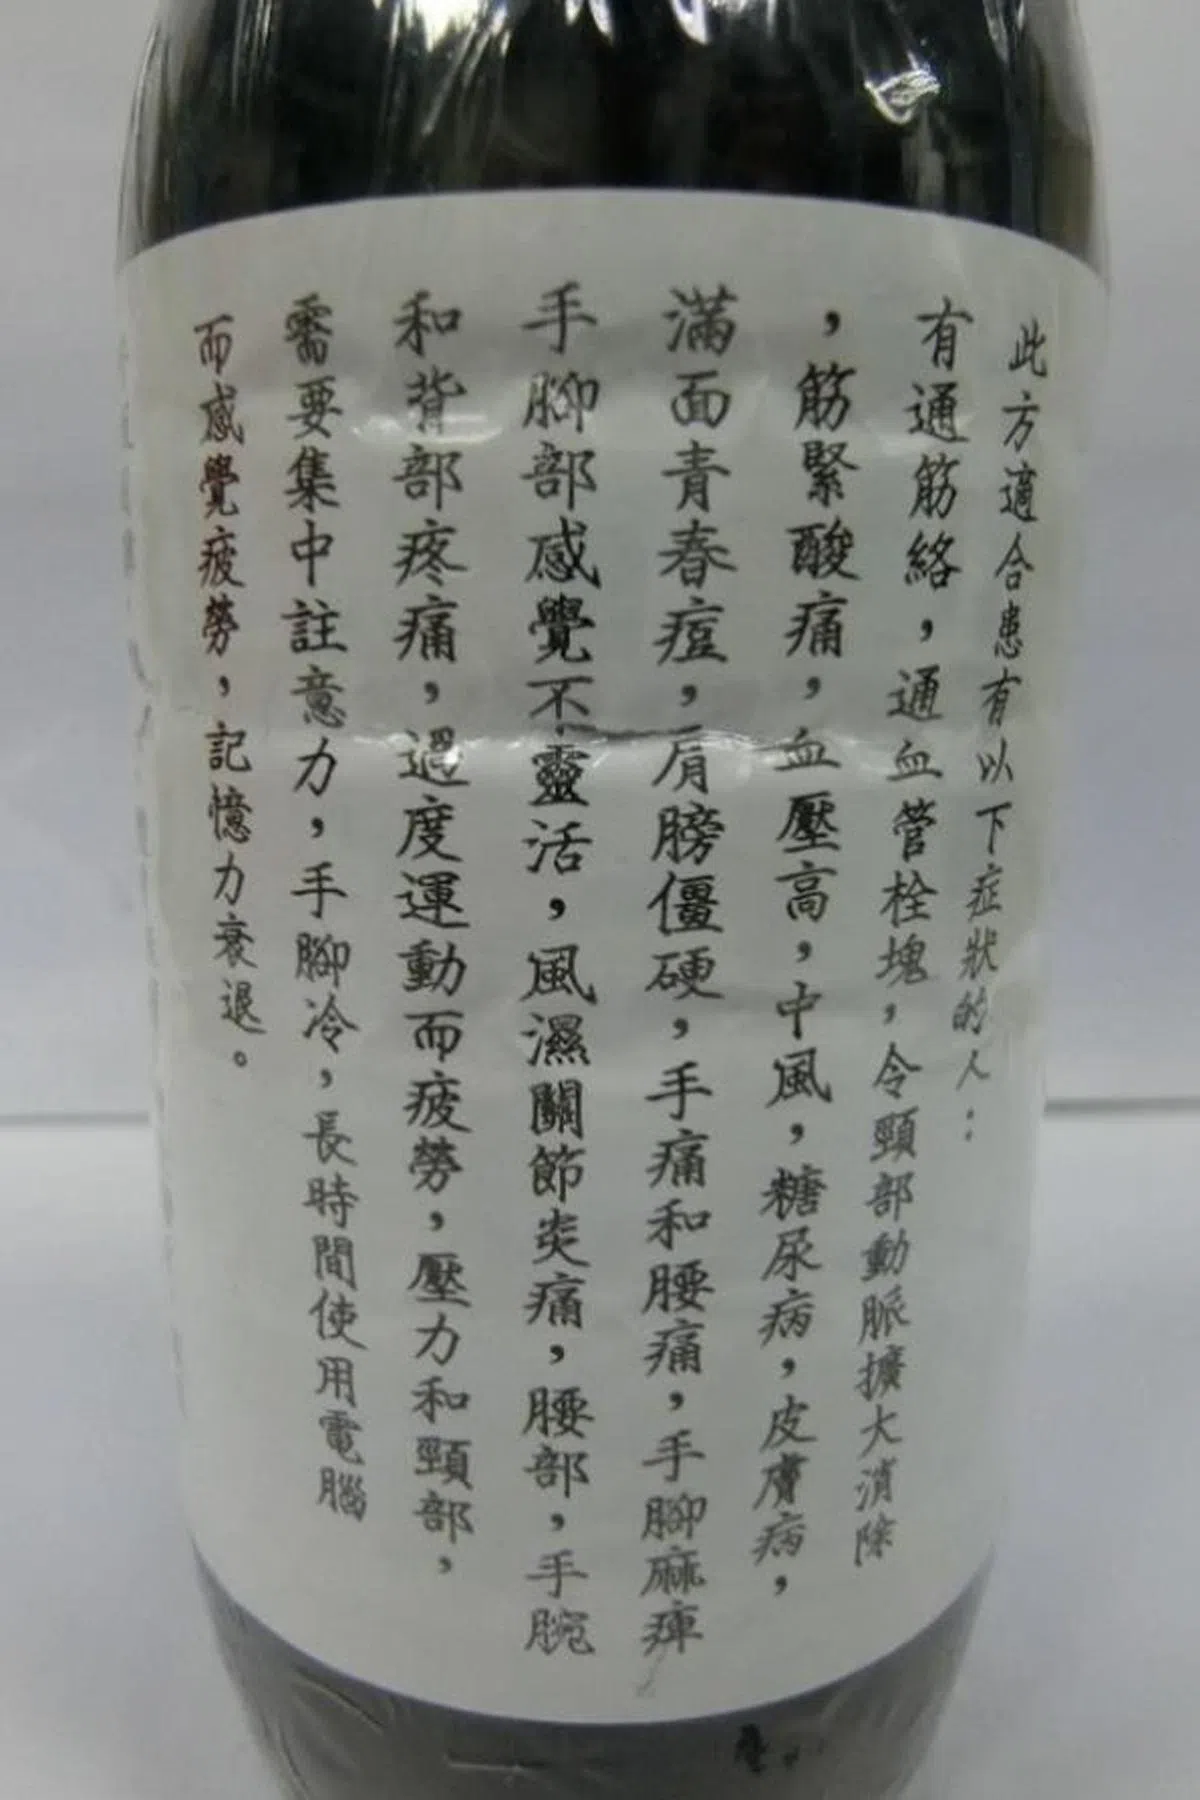 此方適合患有以下症狀的人：
有通筋絡，通血管栓塊，令頸部動脈擴大消除
，筋緊酸痛，血壓高，中風，糖尿病，皮膚病，
滿面青春痘，肩膀僵硬，手痛和腰痛，手腳麻痺
手腳部感覺不靈活，風濕關節炎痛，腰部，手腕
和背部疼痛，過度運動而疲勞，壓力和頸部，
需要集中註意力，手腳冷，長時間使用電腦
而感覺疲勞，記憶力衰退。